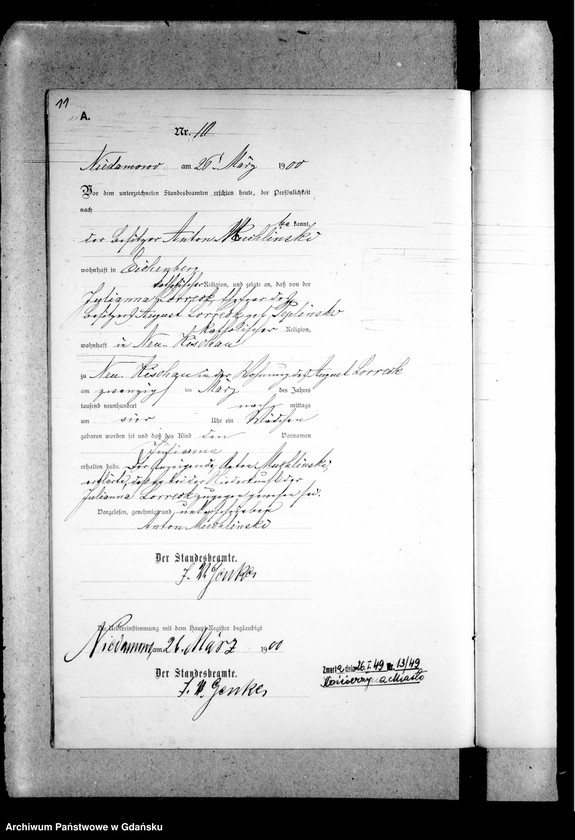 11
A.
Nr. 10
Niedamowo am 26 März 1900
Vor dem unterzeichneten Standesbeamten erschien heute, der Persönlichkeit
nach
be kannt,
der Besitzer Anton Muchlinski
wohnhaft in Eichenberg
katholischer Religion, und zeigte an, daß von der
Julianna Lorreck, Ehefrau des
Besitzers August Lorreck geb.
katholischer Religion,
wohnhaft in Neu Kischau
zu Neu Kischau in der Wohnung des August Lorreck
am zwanzig ten März des Jahres
tausend neunhundert nach mittags
um vier Uhr ein Mädchen
geboren worden sei und daß das Kind den Vornamen
Julianna
erhalten habe. Der Anzeigende Anton Muchlinski
erklärte, daß er bei der Niederkunft der
Julianna Lorreck zugegen gewesen sei.
Vorgelesen, genehmigt und unterschrieben
Anton Muchlinski
Der Standesbeamte.
J. V. Genke
Die Uebereinstimmung mit dem Haupt-Register beglaubigt
Niedamowo, am 26. März 1900
Der Standesbeamte.
J. V. Genke
Zmarła dnia 26.I.49 Nr. 13/49
Kościerzyna Miasto
Archiwum Państwowe w Gdańsku